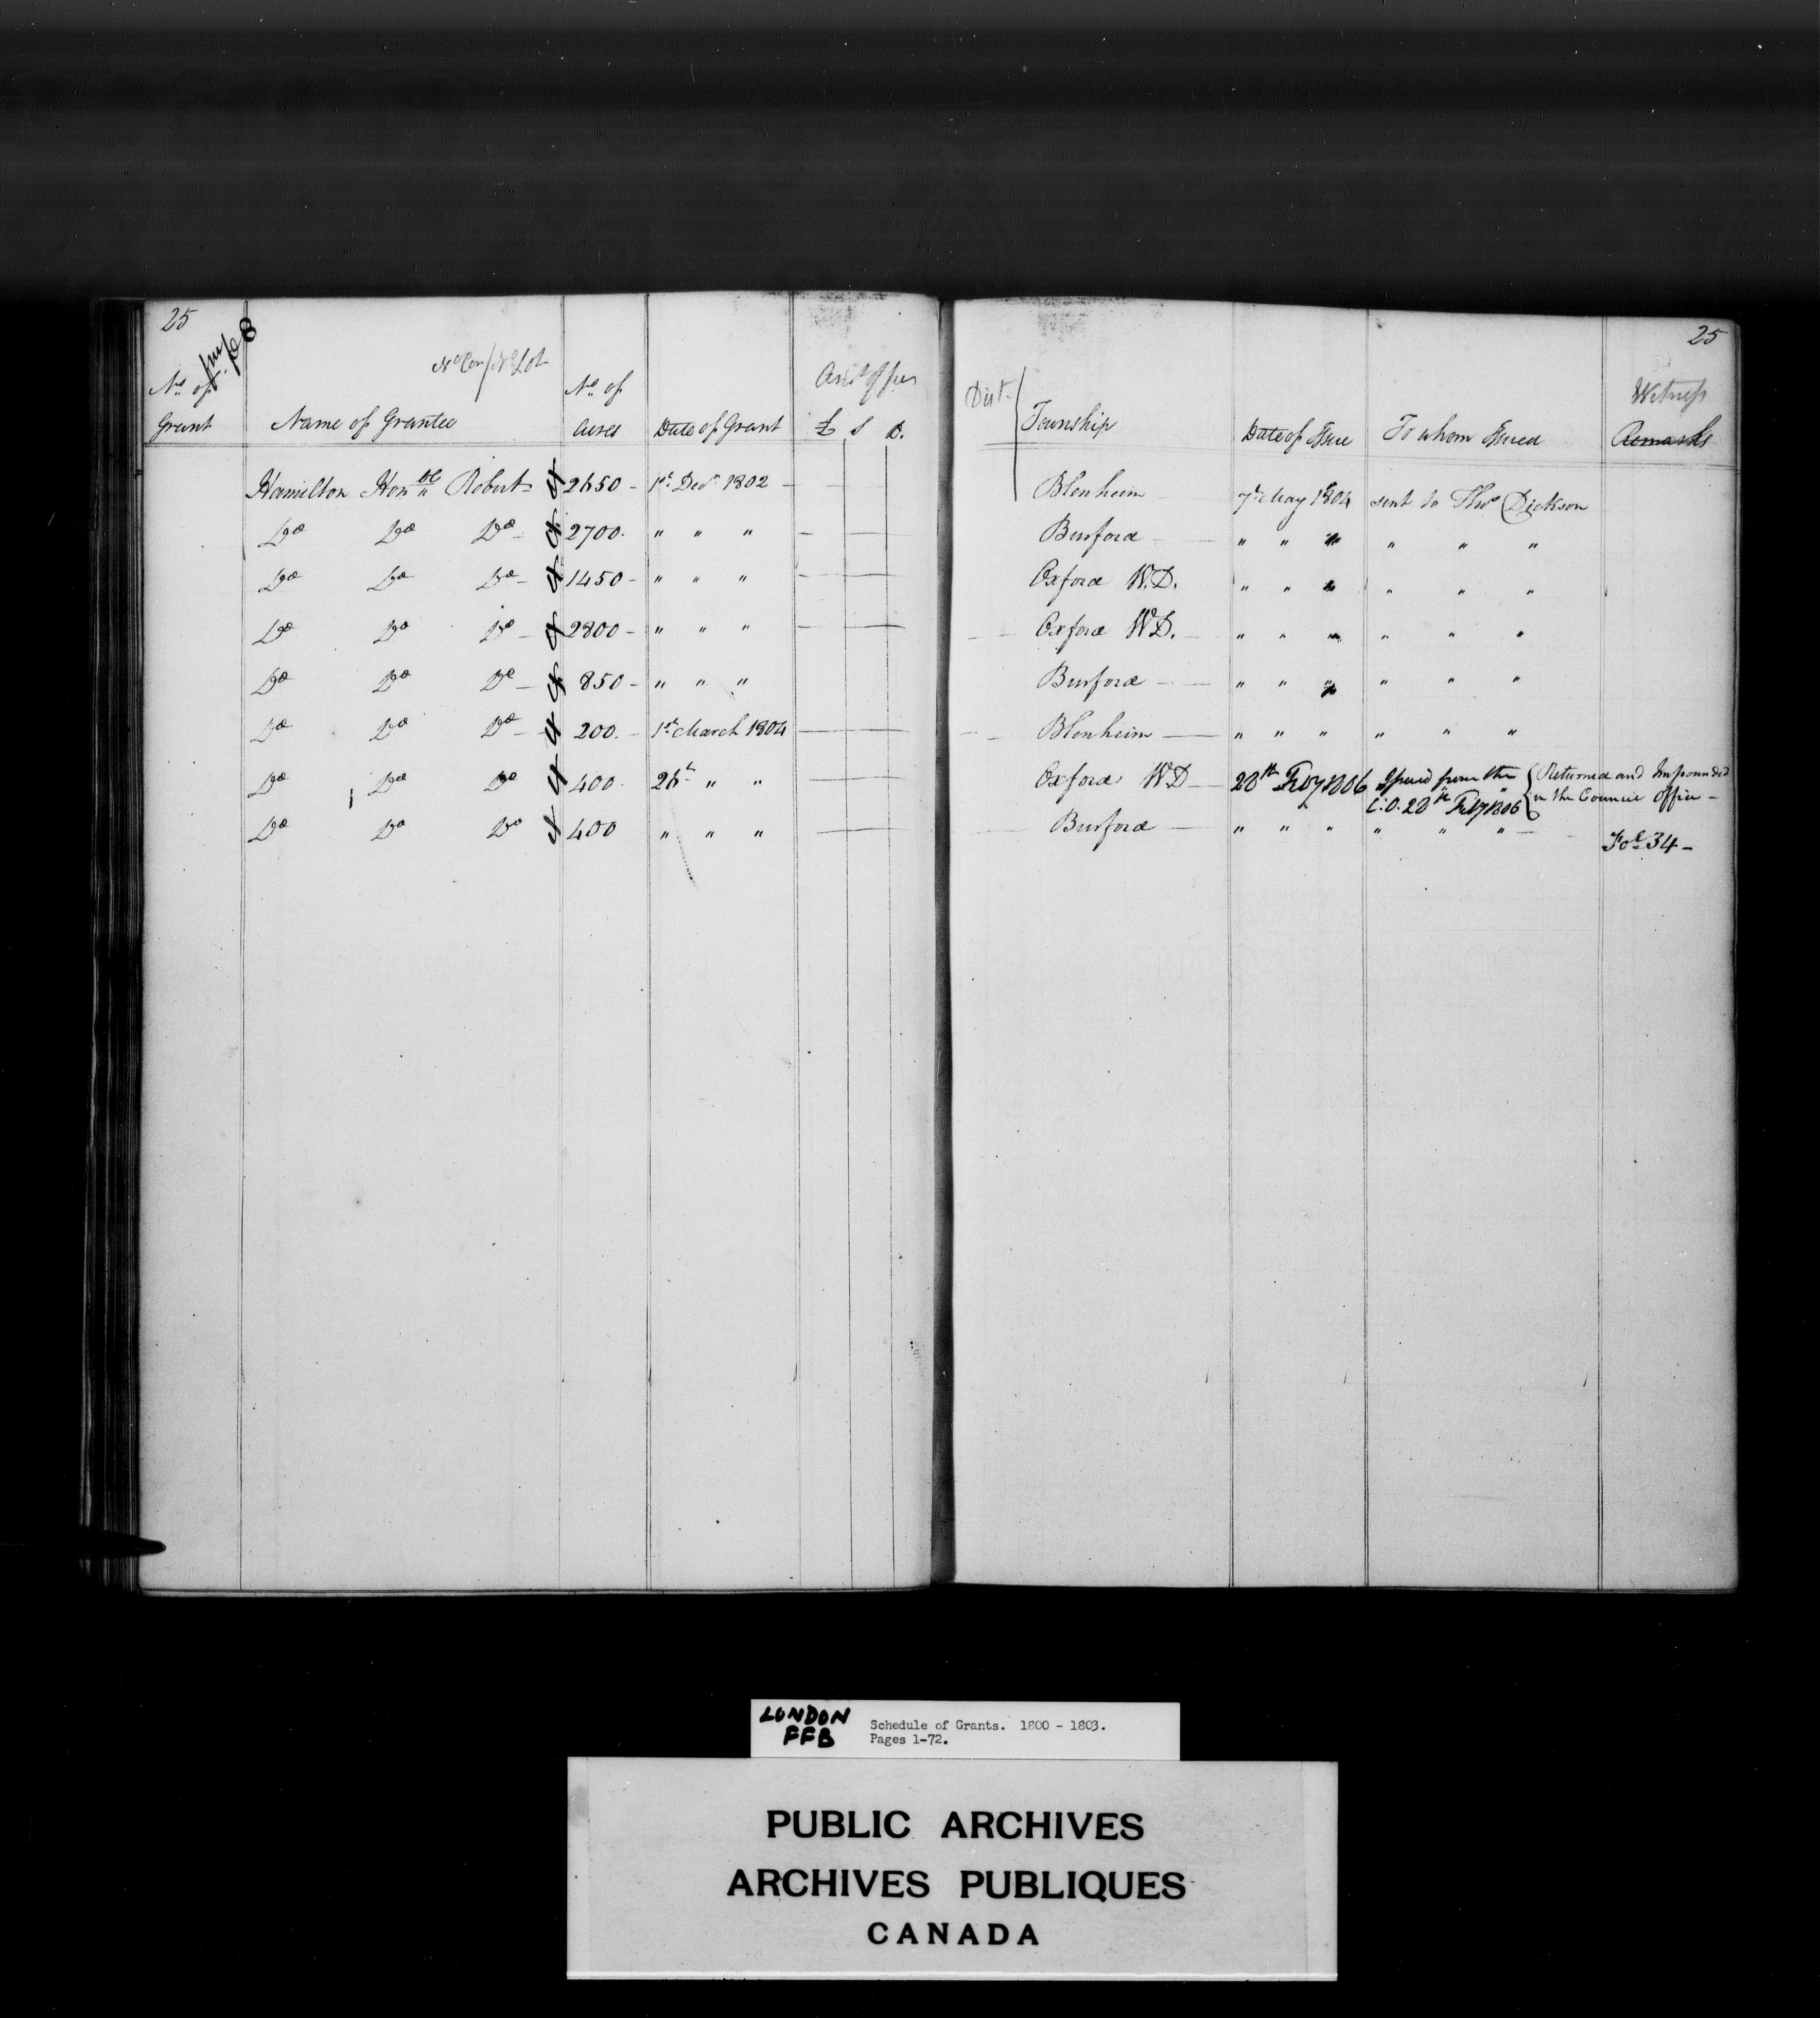 25 25
No Con / No Lot
No of No of Amt of fees Dist. Witness
Grant Name of Grantee Acres Date of Grant £ S D. Township Date of Issue To whom Issued Remarks
Hamilton Honble Robert 2650 - 1st Decr 1802 - Blenheim 7th May 1804 sent to Thos Dickson
Do Do Do - 2700. " " " Burford " " " " " "
Do Do Do - 1450 - " " " Oxford W.D. " " " " " "
Do Do Do - 2800 - " " " Oxford W.D. " " " " " "
Do Do Do - 850 - " " " Burford " " " " " "
Do Do Do - 200. - 1st March 1804 Blenheim " " " " " "
Do Do Do 400. 26th " " Oxford W D 28th Feby 1806 Issued from the { Returned and Impounded
C.O. 28th Feby 1806 in the Council Office -
Do Do Do 400 " " " Burford " " " " " "
Fol. 34 -
LONDON
FFB
Schedule of Grants. 1800 - 1803.
Pages 1-72.
PUBLIC ARCHIVES
ARCHIVES PUBLIQUES
CANADA